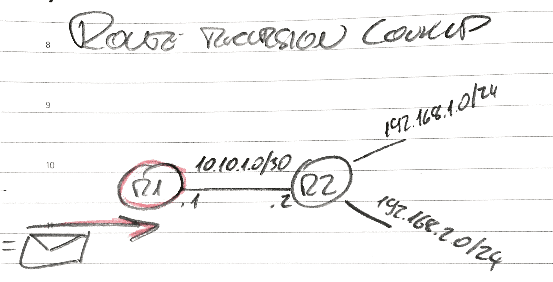 8
ROUTE RECURSION LOOKUP
9
192.168.1.0/24
10
10.10.1.0/30
R1
R2
.1
.2
192.168.2.0/24
=